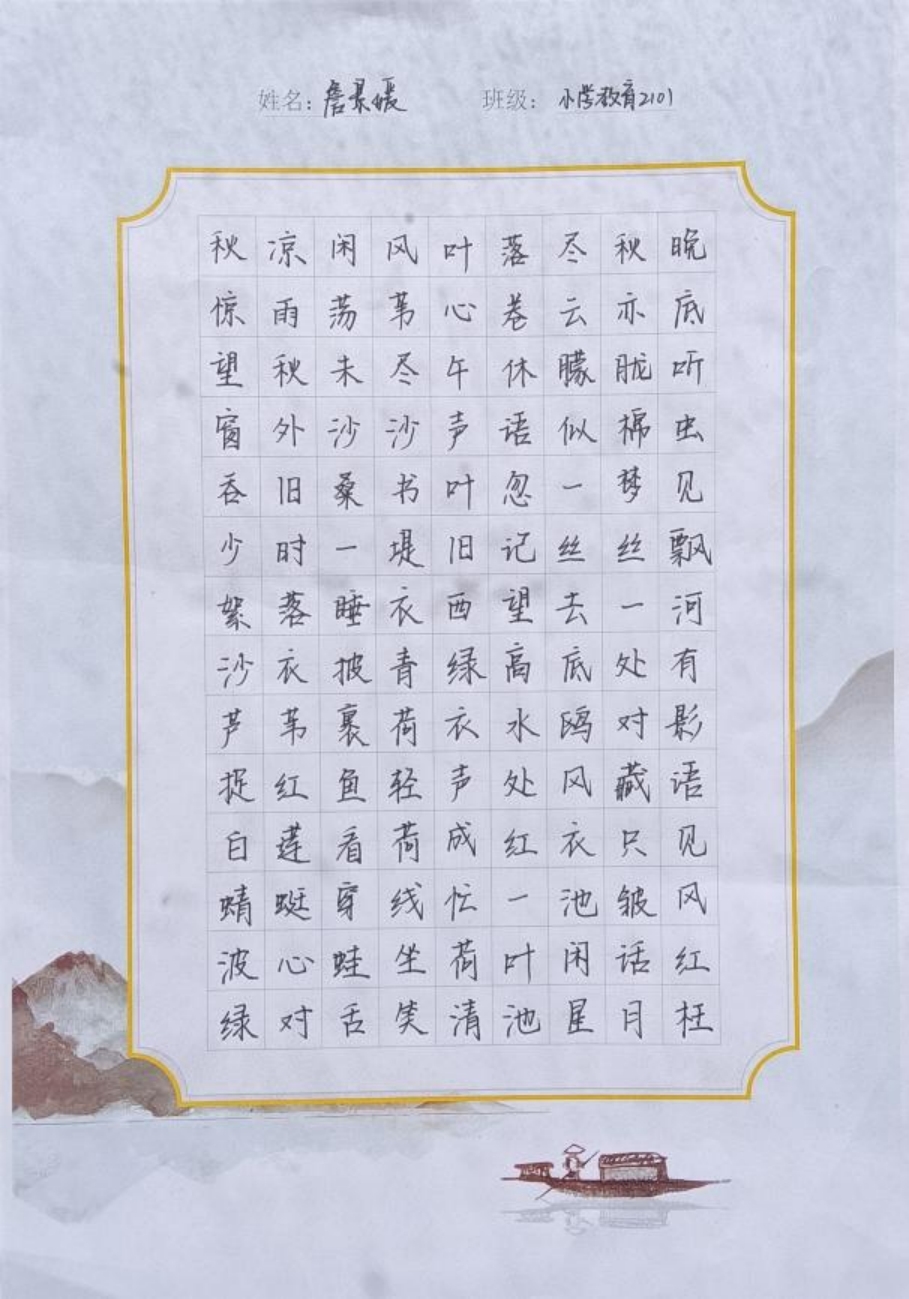 姓名：詹景媛 班级：小学教育2101
秋凉闲风叶落尽秋晚
惊雨荡苇心卷云亦底
望秋未尽午休朦胧听
窗外沙沙声语似棉虫
吞旧桑书叶忽一梦见
少时一堤旧记丝丝飘
絮落睡衣西望去一河
沙衣披青绿高底处有
芦苇裹荷衣水鸥对影
捉红鱼轻声处风藏语
白莲看荷成红衣只见
蜻蜓穿线忙一池皱风
波心蛙坐荷叶闲话红
绿对舌笑清池星月枉